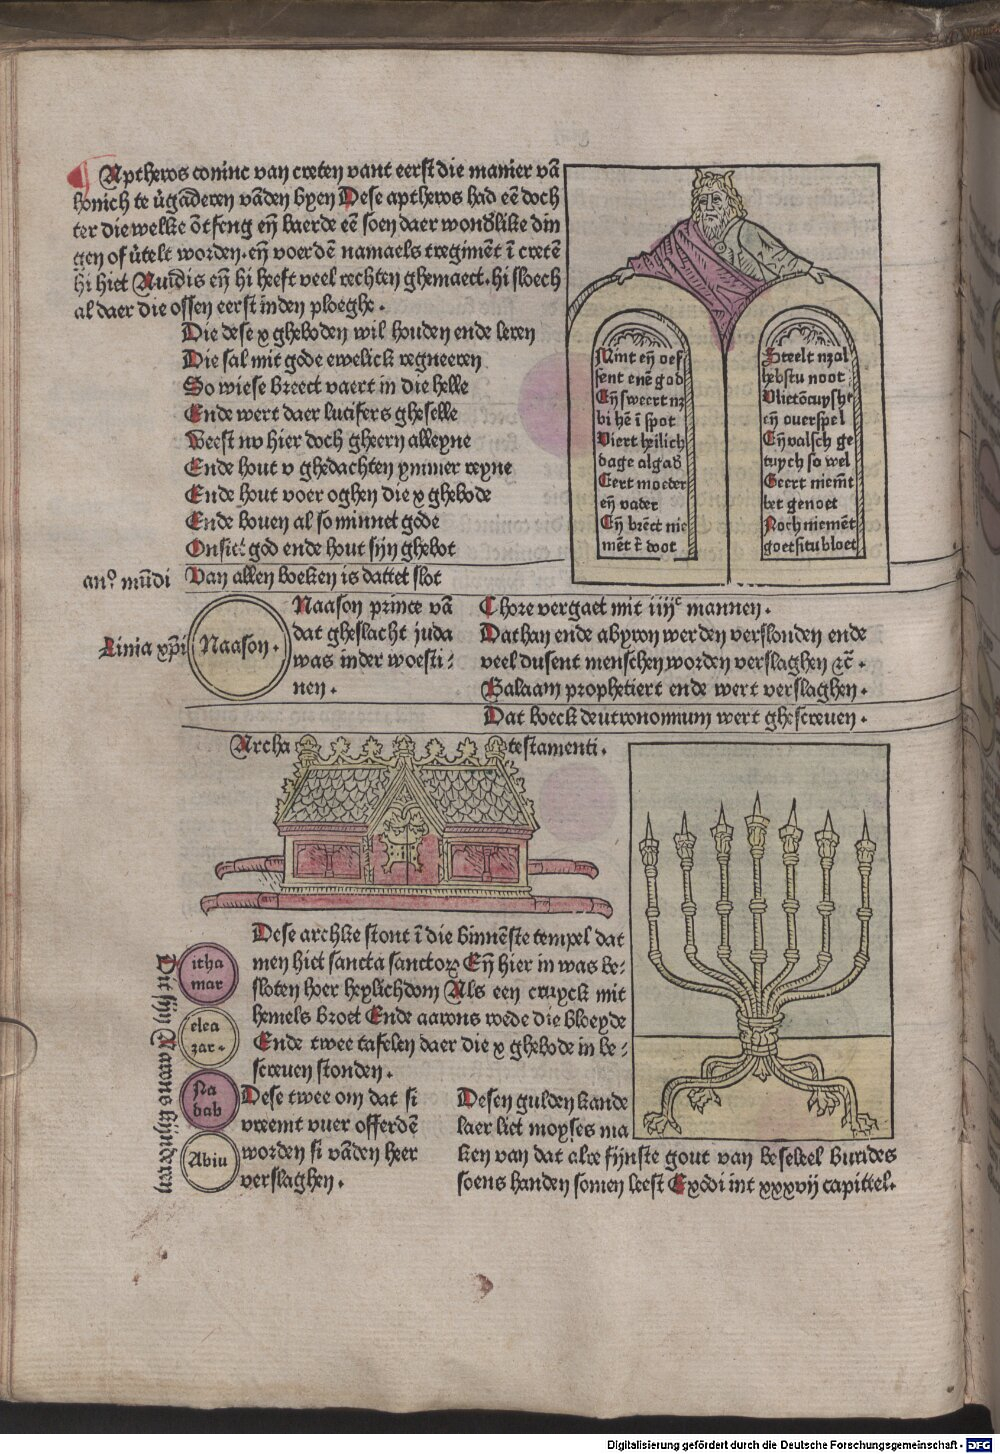 Aptheros coninc van creten vant eerst die manier vā
honich te v̓gaderen vandē byen Dese aptheros had eē doch
ter die welke ōtfeng eñ baerde eē soen daer wond̓like din
gen of v̓telt worden. eñ voerdē namaels tregimēt ī cretē
hi hiet eñ hi heeft veel rechten ghemaect. hi sloech
al daer die ossen eerst inden ploeghe.
Die dese x gheboden wil houden ende leren
Die sal mit gode ewelick regneeren
So wiese breect vaert in die helle
Ende wert daer lucifers gheselle
Weest nv hier doch gheern alleyne
Ende hout v ghedachten ymmer reyne
Ende hout voer oghen die x ghebode
Ende bouen al so minnet gode
Onsiet god ende hout sijn ghebot
Van allen boeken is dattet slot
Mint eñ oef
fent enē god
Eñ sweert nz
bi hē ī spot
Viert heilich
dage algad̓
Eert moeder
eñ vader
Eñ brēct nie
mēt t̄ doot
Steelt nz al
hebstu noot
eñ ouerspel
Eñ valsch ge
tuych so wel
Geert niemt̄
bet genoet
Noch niemēt
goet situ bloet
anº mūdi
Linia xp̄i
Naason.
Naason prince vā
dat gheslacht juda
was inder woesti-
nen.
Chore vergaet mit iiijᶜ mannen.
Dathan ende abyron werden verslonden ende
veel dusent menschen worden verslaghen ꝛc̄.
Balaam prophetiert ende wert verslaghen.
Dat boeck deutronomium wert ghescreuen.
Archa testamenti.
Dese archke stont ī die binnēste tempel dat
men hiet sancta sanctoꝝ Eñ hier in was be-
sloten hoer heylichdom Als een cruyck mit
hemels broet Ende aarons roede die bloeyde
Ende twee tafelen daer die x ghebode in be-
screuen stonden.
Dit sijn Aarons kijnderen
itha
mar
elea
zar.
Na
dab
Abiu
Dese twee om dat si
vreemt vuer offerdē
worden si vādē heer
verslaghen.
Desen gulden kande
laer liet moyses ma
ken van dat alre fijnste gout van beseleel
soens handen somen leest Exodi int xxxvij capittel.
Digitalisierung gefördert durch die Deutsche Forschungsgemeinschaft - DFG